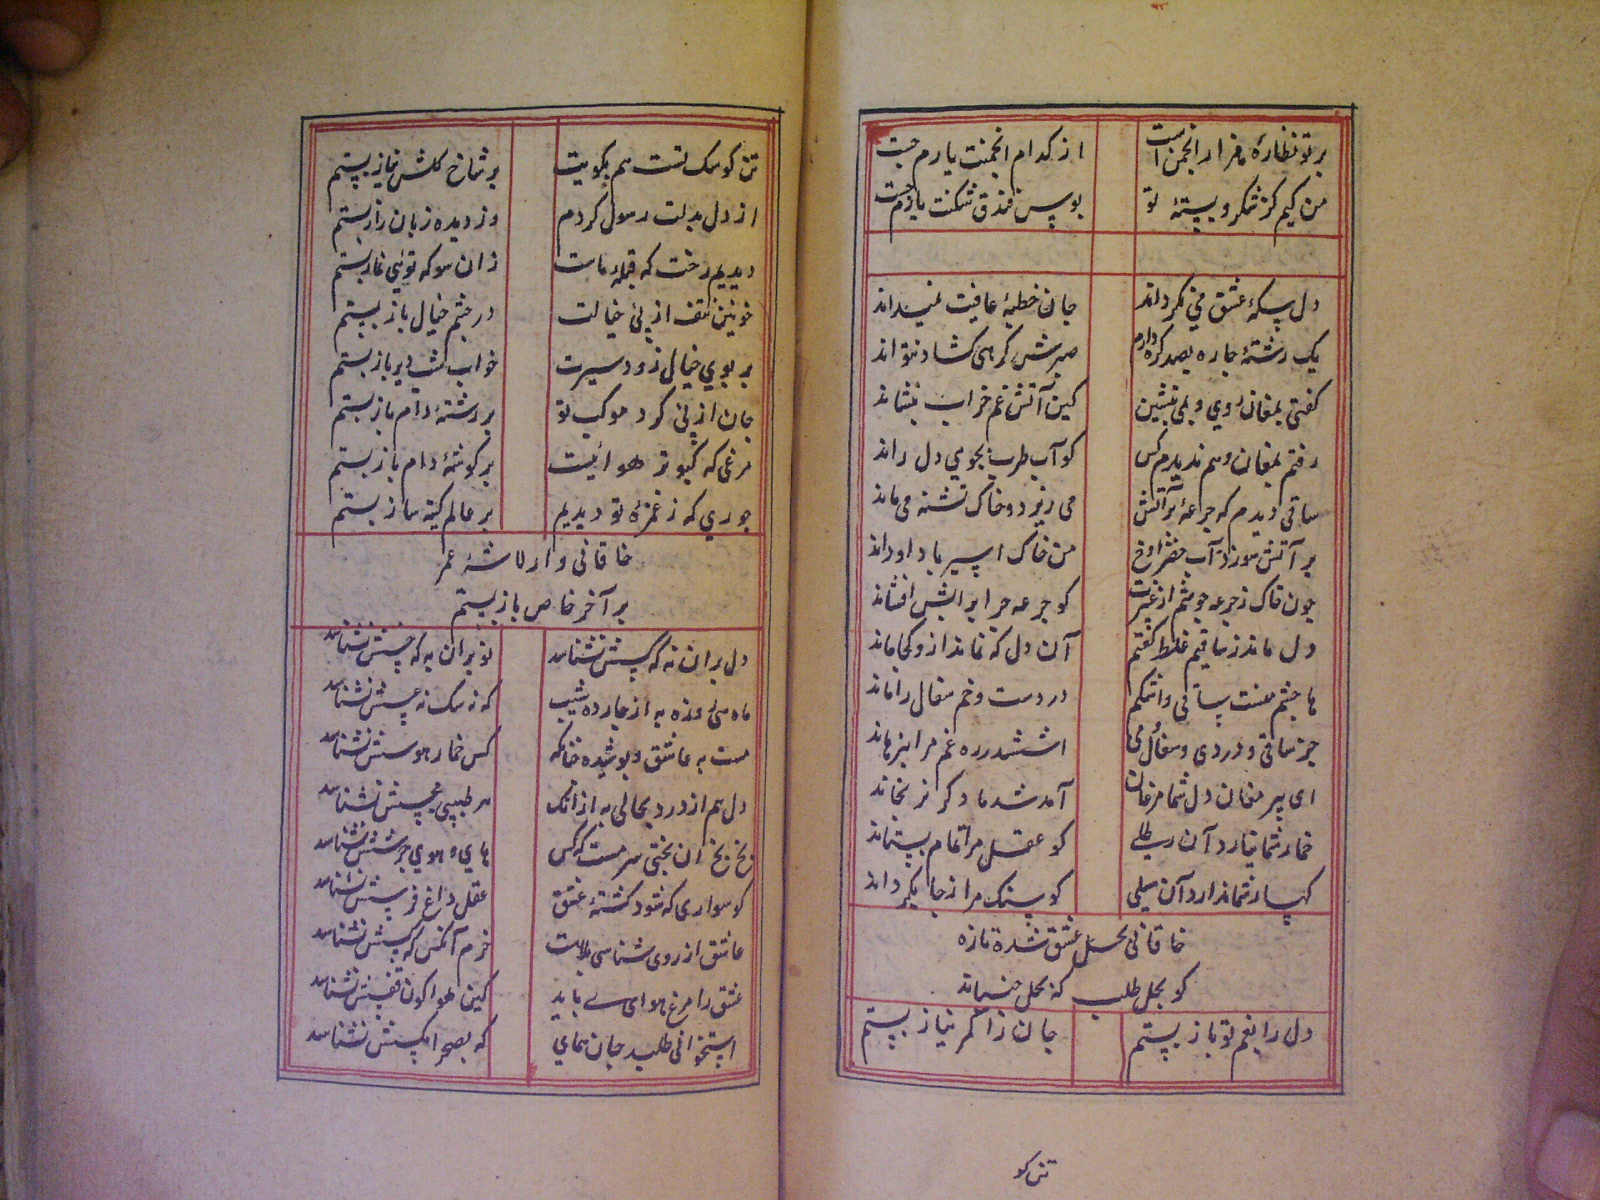 بر تو نظارۀ هزار انجمن است از کدام انجمنت یارم جست
من کیم کز شکر و پستۀ تو بوس فندق شکنت یارم جست
دل سکۀ عشق می نگرداند جان خطبۀ عافیت نمیداند
یک رشتۀ جان بصد گره دارم صبرش گرهی گشاد نتواند
گفتی بمغان روی و بمی بنشین کین آتش غم خراب بنشاند
رفتم بمغان و هم ندیدم کس کو آب طرب بجوی دل راند
ساقی دیدم که جرعه بر آتش می ریزد و خاک تشنه می ماند
بر آتش سوزد آب خضر او خ من خاک اسیر باد او داند
چون خاک ز جرعه جوشم از غیرت کو جرعه چرا بر آتش افشاند
دل ماند ز ساقیم غلط گفتم آن دل که نماند ازو کجا ماند
ها جیشم مست ساقی و اشکم در دست و خم سفال را ماند
جز ساقی و دردی و سفال می از ششدره غم مرا نرهاند
ای پیر مغان دل شما مرغان آمد شد ما دگر نرنجاند
خمار شما ندارد آن رطلی کو عقل مرا تمام بستاند
کهسار شما ندارد آن سیلی کو سنگ مرا ز جا بگرداند
خاقانی نحل عشق شد تازه
کو نحل طلب که نحل جنباند
دل را بغم تو باز بستم جان را کمر نیاز بستم
تن کو
تن کو سگ تست هم بکویت بر شاخ گلش نماز بستم
از دل بدلت رسول کردم وز دیده زبان راز بستم
دیدیم رخت که قبلۀ ماست زان سو که توئی نماز بستم
خونین تتق از پی خیالت در چشم خیال باز بستم
بر بوی خیال زود سیرت خواب شب دیر باز بستم
جان از پی گرد موکب تو بر رشتۀ دام باز بستم
مرغی که کبوتر هوائیت بر گوشۀ دام باز بستم
جوری که ز غمزۀ تو دیدیم بر عالم کینه ساز بستم
خاقانی وار لاشۀ عمر
بر آخر خاص باز بستم
دل بران نه که کسش نشناسد نو بران به که خسش نشناسد
ماه سی روزه به از چارده شب که نه سگ نه عسسش نشناسد
مست به عاشق و پوشیده چنانکه کس خمار هوسش نشناسد
دل هم از درد بحالی به ازانک هر طبیبی مجسش نشناسد
بخ بخ آن بختی سرمست که کس های و هوی جرسش نشناسد
کو سواری که شود کشتۀ عشق عقل داغ فرسش نشناسد
عاشق از روی شناسی بلاست خرم آنکس که کسش نشناسد
عشق را مرغ هوای سے باید کین هوا کون قفسش نشناسد
استخوانی طلبد جان همای که بصحرا مگسش نشناسد